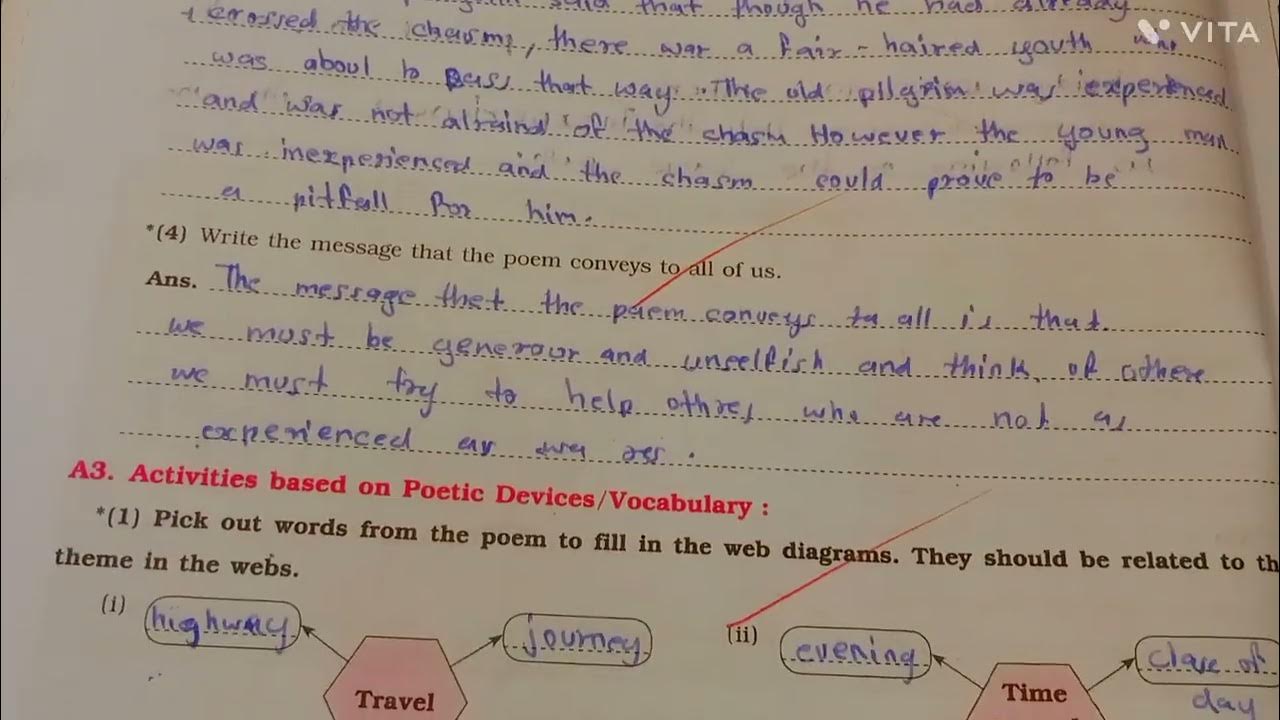 said that though he had already
crossed the chasm, there was a fair-haired youth who
VITA
was about to pass that way. The old pilgrim was experienced
and was not afraind of the chasm However the young man
was inexperienced and the chasm could prove to be
a pitfall for him.
*(4) Write the message that the poem conveys to all of us.
Ans. The message thet the poem conveys to all is that
we must be generour and unselfish and think of othere
we must try to help othres who are not as
experienced as
A3. Activities based on Poetic Devices/Vocabulary :
*(1) Pick out words from the poem to fill in the web diagrams. They should be related to th
theme in the webs.
(i) highway journey (ii) evening close of
day
Travel Time